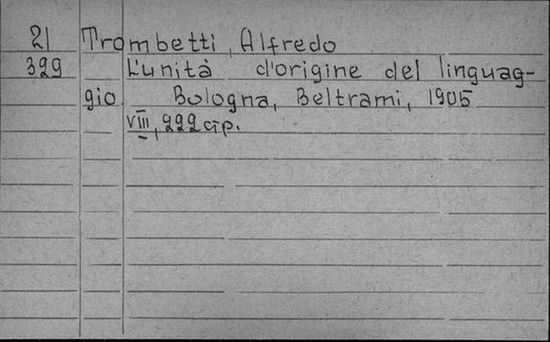 21 Trombetti, Alfredo
399 L'unità d'origine del linguag-
gio. Bologna, Beltrami, 1905
VIII, 222 стр.